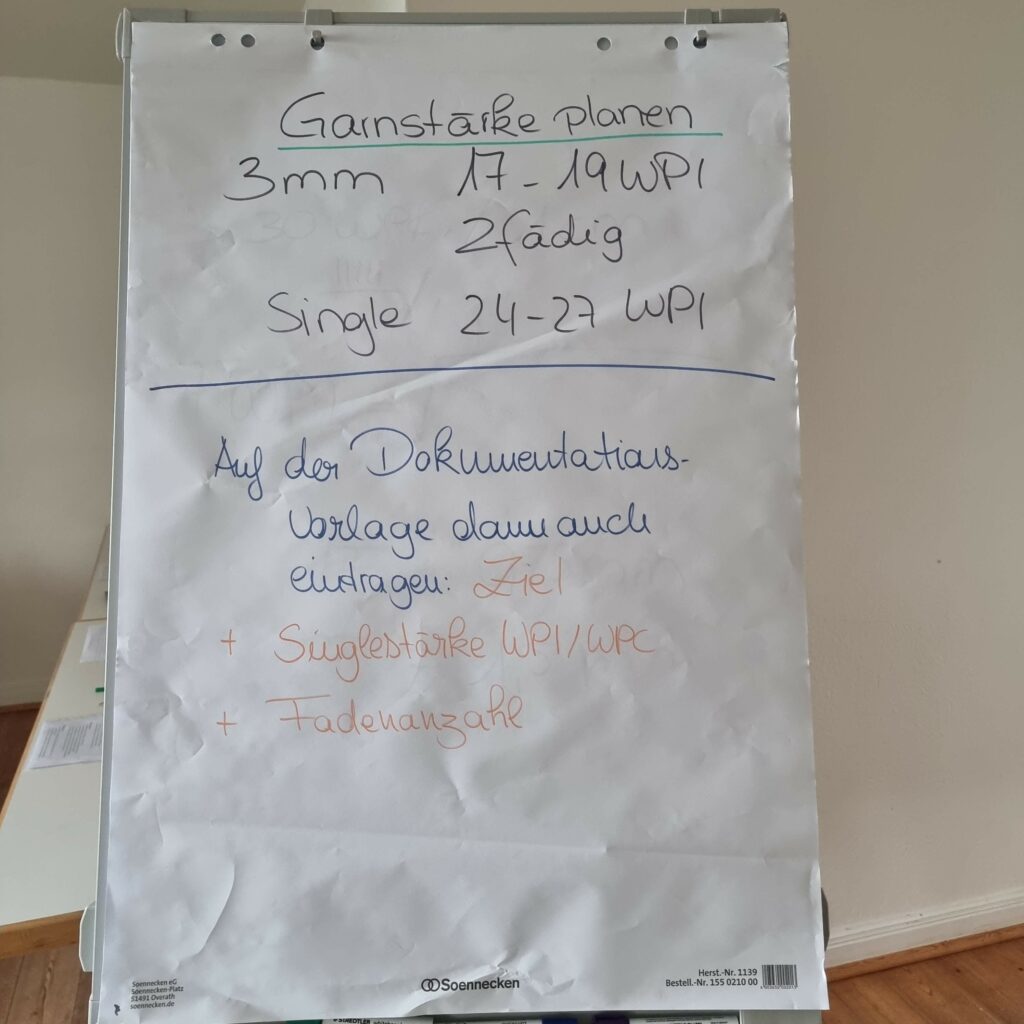 Garnstärke planen
3mm 17-19 WPI
2fädig
Single 24-27 WPI
Auf der Dokumentations-
vorlage dann auch
eintragen: Ziel
+ Singlestärke WPI/WPC
+ Fadenanzahl
Soennecken eG
Soennecken-Platz
51491 Overath
soennecken.de
Soennecken
Herst.-Nr. 1139
Bestell.-Nr. 155 0210 00
STAEDTLER